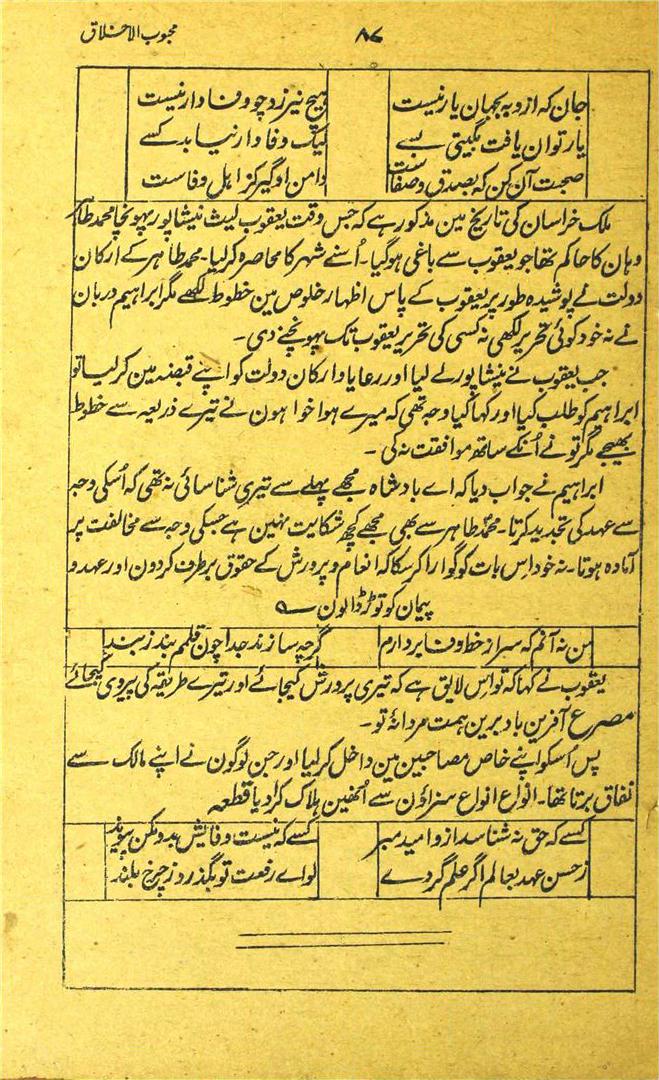 ۸۷ محبوب الاخلاق
جان کہ ازو بہ بجہان یار نیست ہیچ نیرزد چو وفادار نیست
یار توان یافت بگیتی بسے لیک وفادار نیابد کسے
صحبت آن کن کہ بصدق و صفاست دامن او گیر کز اہل وفاست
ملک خراسان کی تاریخ مین مذکور ہے کہ جس وقت یعقوب لیث نیشاپور پہونچا محمد طاہر
وہان کا حاکم تھا جو یعقوب سے باغی ہوگیا۔ اُسنے شہر کا محاصرہ کرلیا۔ محمد طاہر کے ارکان
دولت نے پوشیدہ طور پر یعقوب کے پاس اظہار خلوص مین خطوط لکھے مگر ابراہیم دربان
نے نہ خود کوئی تحریر لکھی نہ کسی کی تحریر یعقوب تک پہونچنے دی۔
جب یعقوب نے نیشاپور لے لیا اور رعایا و ارکان دولت کو اپنے قبضہ مین کرلیا تو
ابراہیم کو طلب کیا اور کہا کیا وجہ تھی کہ میرے ہوا خواہون نے تیرے ذریعہ سے خطوط
بھیجے مگر تونے اُنکے ساتھ موافقت نہ کی۔
ابراہیم نے جواب دیا کہ اے بادشاہ مجھے پہلے سے تیری شناسائی نہ تھی کہ اُسکی وجہ
سے عہد کی تجدید کرتا۔ محمد طاہر سے بھی مجھے کچھ شکایت نہین ہے جسکی وجہ سے مخالفت پر
آمادہ ہوتا۔ نہ خود اس بات کو گوارا کرسکا کہ انعام و پرورش کے حقوق برطرف کردون اور عہد و
پیمان کو توڑ ڈالون ؎
من نہ آنم کہ سر از خط وفا بردارم گرچہ سازند جدا چون قلم بند ز بند
یعقوب نے کہا کہ تو اس لایق ہے کہ تیری پرورش کیجائے اور تیرے طریقہ کی پیروی کیجائے
مصرع آفرین باد برین ہمت مردانۂ تو۔
پس اُسکو اپنے خاص مصاحبین مین داخل کرلیا اور جن لوگون نے اپنے مالک سے
نفاق برتا تھا۔ انواع انواع سزاؤن سے اُنھین ہلاک کرا دیا قطعہ
کسے کہ حق نہ شناسد ازو امید مبر کسے کہ نیست وفایش بدو مکن پیوند
ز حسن عہد بعالم اگر علم گردے لواے رفعت تو بگذرد ز چرخ بلند